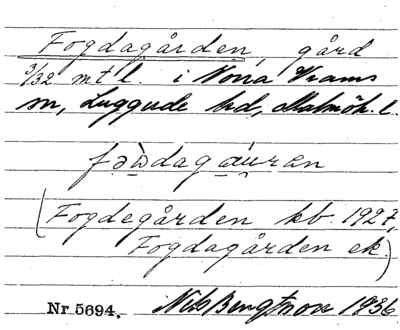 Fogdagården, gård
3/32 mtl. i Norra Vrams
sn, Luggude hd, Malmöh. l.
(Fogdegården kb. 1927,
Fogdagården ek.)
Nr 5694. Nils Bengtsson 1936